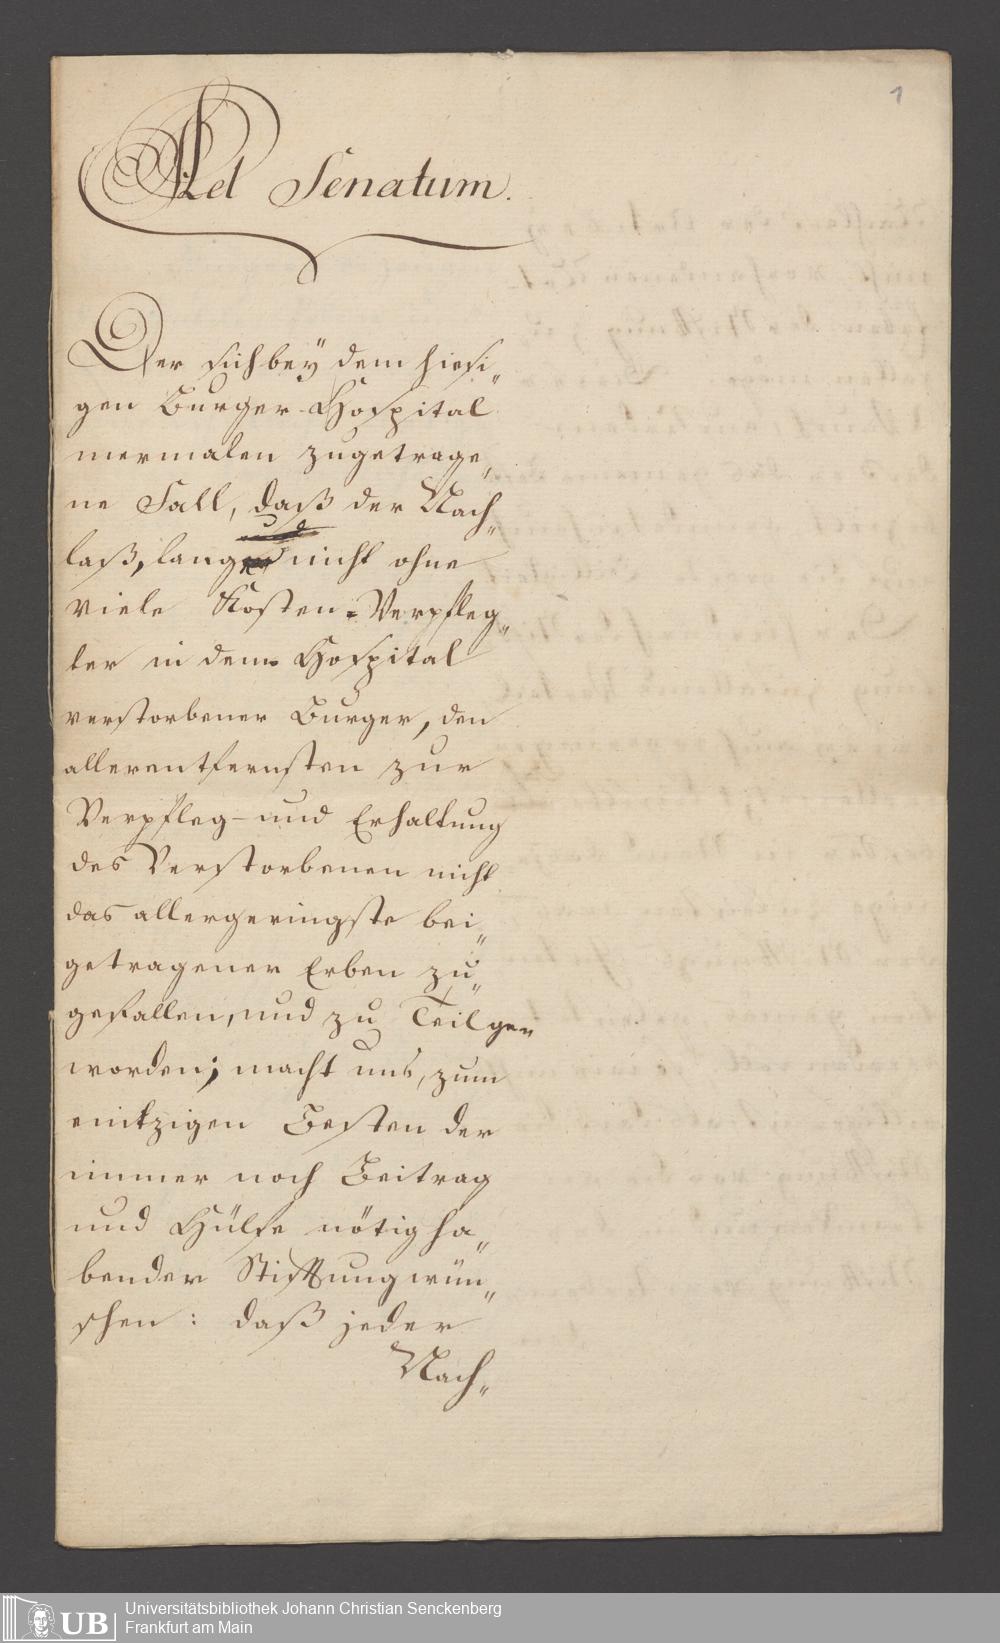 1
Ad Senatum.
Der sich bey dem hiesi„
gen Burger-Hospital
mermalen zugetrage„
ne Fall, daß der Nach„
laß, lang und nicht ohne
viele Kosten-Verpfleg„
ter in dem Hospital
verstorbener Burger, den
allerentfernsten zur
Verpfleg- und Erhaltung
des Verstorbenen nicht
das allergeringste bei„
getragener Erben zu„
gefallen, und zu Teil ge„
worden; macht uns, zum
einzigen Besten der
immer noch Beitrag
und Hülfe nötig ha„
bender Stiftung wün„
schen: daß jeder
Nach„
UB
Universitätsbibliothek Johann Christian Senckenberg
Frankfurt am Main